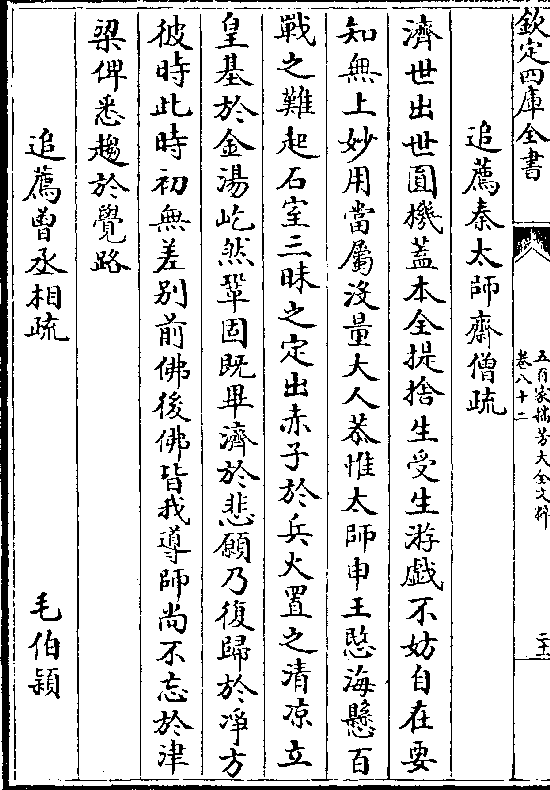 欽定四庫全書
五百家播芳大全文粹
卷八十二
二十
追薦秦太師齋僧疏
濟世出世圓機蓋本全提捨生受生游戯不妨自在要
知無上妙用當屬沒量大人恭惟太師申王愍海懸百
戰之難起石室三昧之定出赤子於兵火置之清凉立
皇基於金湯屹然鞏固既畢濟於悲願乃復歸於淨方
彼時此時初無差别前佛後佛皆我導師尚不忘於津
梁俾悉趨於覺路
追薦曽丞相疏 毛伯頴